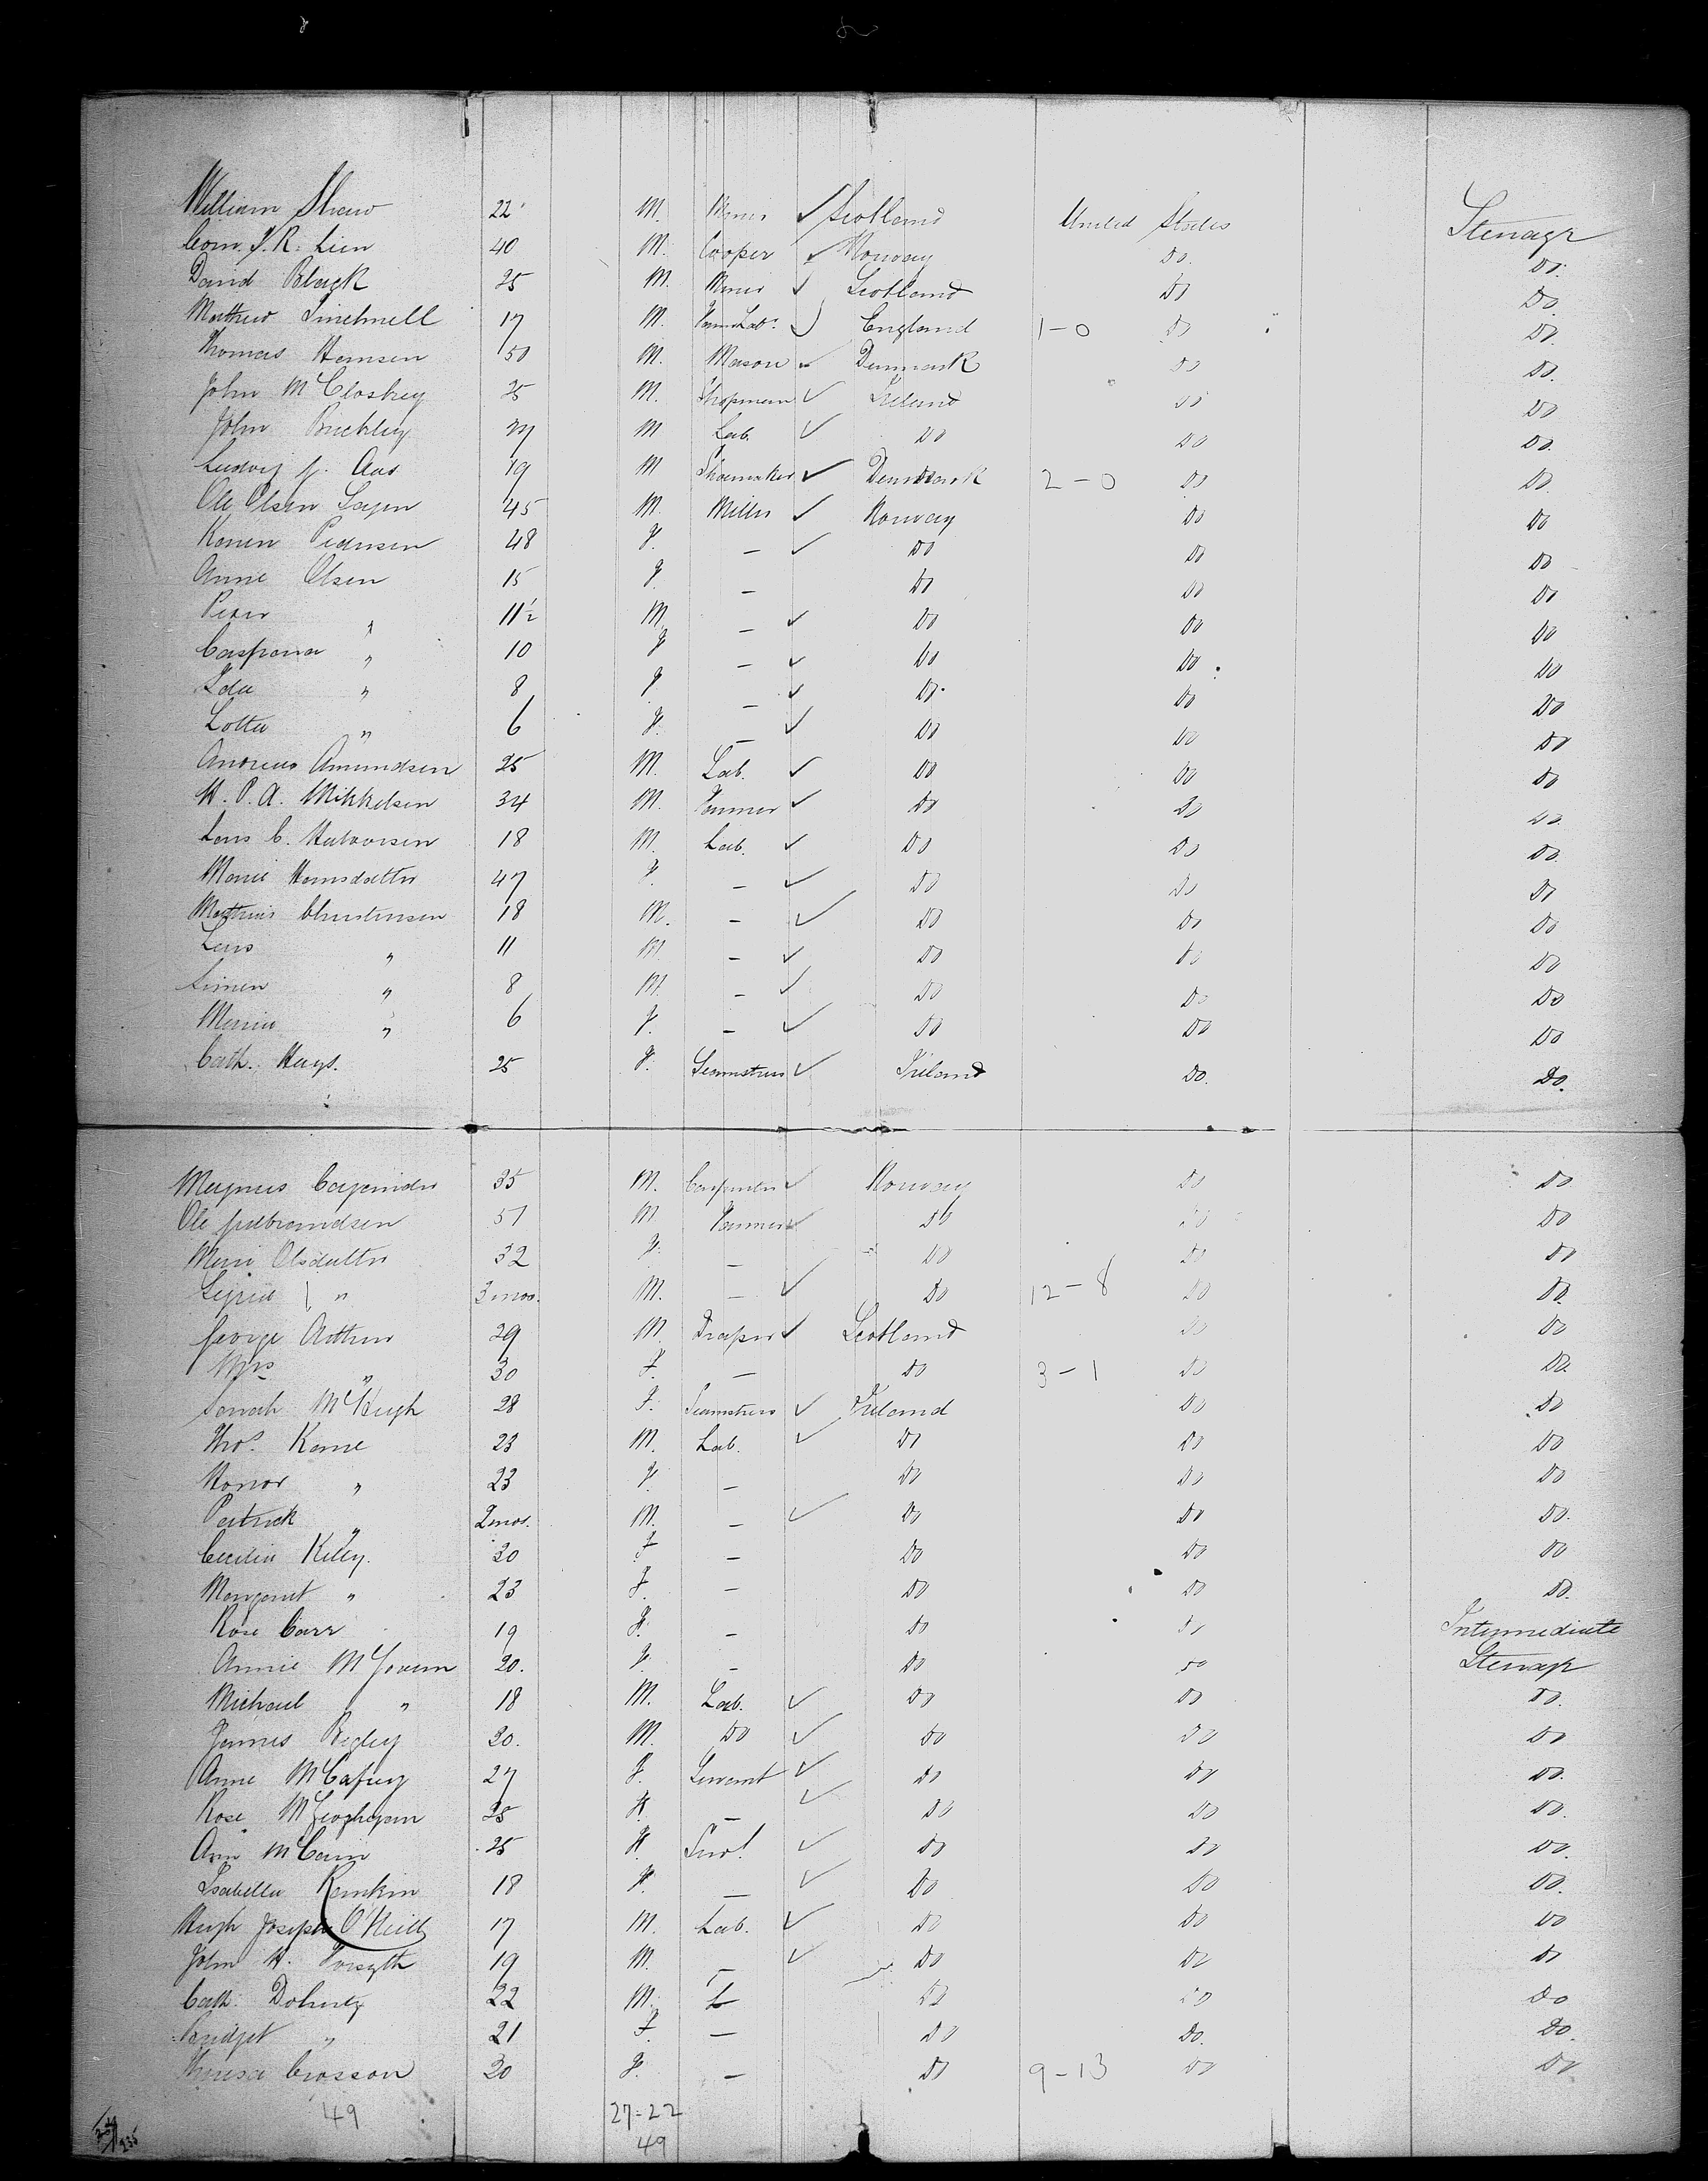 William Shaw 22 M. Miner ✓ Scotland United States Steerage
Corn. J. R. Lien 40 M. Cooper ✓ Norway Do. Do.
David Black 25 M. Miner ✓ Scotland Do Do.
Matthew 17 M. Farm Labr ✓ England 1-0 Do Do.
Thomas Hansen 50 M. Mason ✓ Denmark Do Do.
John McCloskey 25 M. Shopman ✓ Ireland Do Do
John Buckley M Lab. ✓ Do Do Do.
Ludvig J. Aas 19 M Shoemaker ✓ Denmark 2-0 Do Do.
Ole Olsen 45 M. Miller ✓ Norway Do Do
Karen Pedersen 48 F. — ✓ Do Do Do
Anne Olsen 15 F — Do Do Do
Peter " 11½ M. — ✓ Do Do Do
Caspara " 10 F — ✓ Do Do Do
Ida " 8 F. — ✓ Do. Do Do
Lotta " 6 F. — ✓ Do Do Do
Andreas Amundsen 25 M. Lab. ✓ Do Do Do
H. P. A. Mikkelsen 34 M. Farmer ✓ Do Do Do.
Lars C. Halvorsen 18 M. Lab. ✓ Do Do Do.
Marie Hansdatter 47 F. — ✓ Do Do Do
Mathias Christensen 18 M. — ✓ Do Do Do
Lars " 11 M. — ✓ Do Do Do
Simen " 8 M. — ✓ Do Do Do
Maria " 6 F. — ✓ Do Do Do
Cath. Hays. 25 F. Seamstress ✓ Ireland Do. Do.
Magnus 35 M. Carpenter ✓ Norway Do Do
Ole Gulbrandsen 51 M. Farmer ✓ Do Do Do
Mari Olsdatter 32 F. — Do Do Do
" 3 mos. M. — ✓ Do 12-8 Do Do.
George Arthur 29 M. Draper ✓ Scotland Do Do
Mrs " 30 F. — Do 3-1 Do Do.
Sarah McHugh 28 F. Seamstress ✓ Ireland Do Do
Thos. Kane 23 M. Lab. ✓ Do Do Do
Honor " 23 F. — Do Do Do
Patrick " 2 mos. M. — ✓ Do Do Do.
Cecilia Kiley. 20 F. — Do Do Do
Margaret " 23 F. — Do Do Do.
Rose Carr 19 F. — Do Do Intermediate
Annie McGovern 20. F. — Do Do Steerage
Michael " 18 M. Lab. ✓ Do Do Do.
James 20. M. Do ✓ Do Do Do
Anne McCafrey 27 F. Servant ✓ Do Do Do.
Rose McGeoghegan 25 F. — ✓ Do Do Do.
Ann McCann 25 F. Servt. ✓ Do Do Do.
Isabella Rankin 18 F. — ✓ Do Do Do.
Hugh Joseph O'Neill 17 M. Lab. ✓ Do Do Do
John H. Forsyth 19 M. — ✓ Do Do Do
Cath. Doherty 22 M. Do Do Do
Bridget " 21 F. — Do Do. Do.
Crosson 20 F. — Do 9-13 Do Do
49 27-22
49